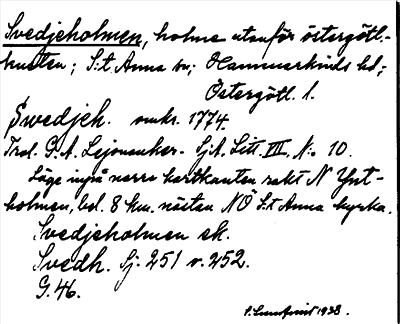 Svedjeholmen, holme utanför östergötl.-
kusten; S:t Anna sn; Hammarkinds hd;
Östergötl. l.
Swedjeh. omkr. 1774.
Trol. G. A. Lejonanker. Sj.A. Litt. VIII. N:o 10.
Läge invid norra kartkanten rakt N Ynt-
holmen, bel. 8 km. nästan NÖ S:t Anna kyrka.
Svedjeholmen ek.
Svedh. Sj: 251 v. 252.
G. 46.
1938.